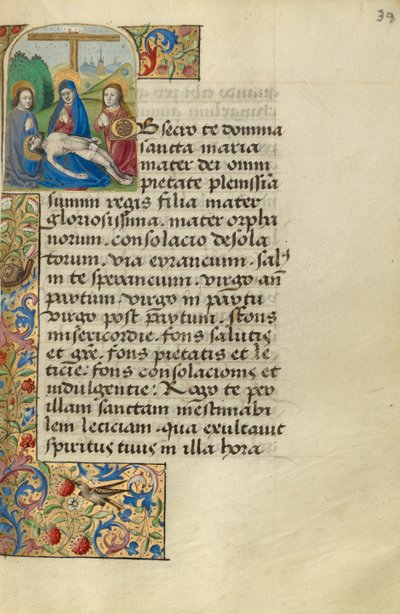 39
Obsecro te domina
sancta maria
mater dei omni
pietate plenissia
summi regis filia mater
gloriosissima. mater orpha
norum. consolacio desola
torum. via errancum. sal9
in te sperancum. virgo an
partum. virgo in partu
virgo post partum. Fons
misericordie. fons salutis
et gre. fons pietatis et le
ticie. fons consolacionis et
indulgentie: Rogo te per
illam sanctam inestimabi
lem leticiam. qua exultauit
spiritus tuus in illa hora